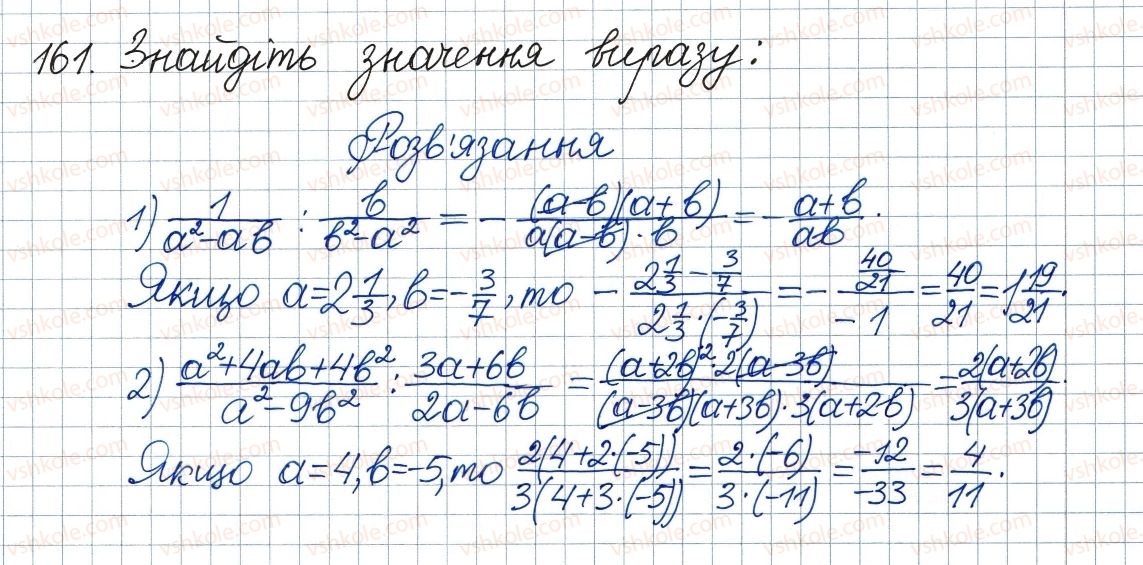 161. Знайдіть значення виразу:
Розв'язання
1) 1/(a²-ab) : b/(b²-a²) = -((a-b)(a+b))/(a(a-b)·b) = -(a+b)/(ab).
Якщо a=2 1/3, b=-3/7, то -(2 1/3 - 3/7)/(2 1/3·(-3/7)) = -(40/21)/(-1) = 40/21 = 1 19/21.
2) (a²+4ab+4b²)/(a²-9b²) : (3a+6b)/(2a-6b) = ((a+2b)²·2(a-3b))/((a-3b)(a+3b)·3(a+2b)) = 2(a+2b)/3(a+3b).
Якщо a=4, b=-5, то 2(4+2·(-5))/3(4+3·(-5)) = 2·(-6)/3·(-11) = -12/-33 = 4/11.